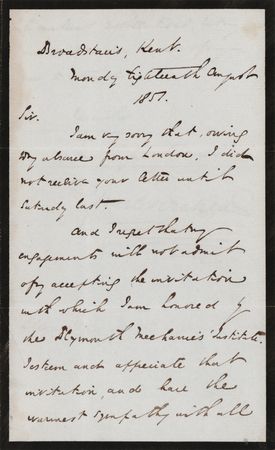 Broadstairs, Kent.
Monday Eighteenth August
1851.
Sir.
I am very sorry that, owing
my absence from London, I did
not receive your letter until
Saturday last.
And I regret that my
engagements will not admit
of my accepting the invitation
with which I am honored by
the Plymouth Mechanics Institute.
I esteem and appreciate that
invitation, and have the
warmest sympathy with all